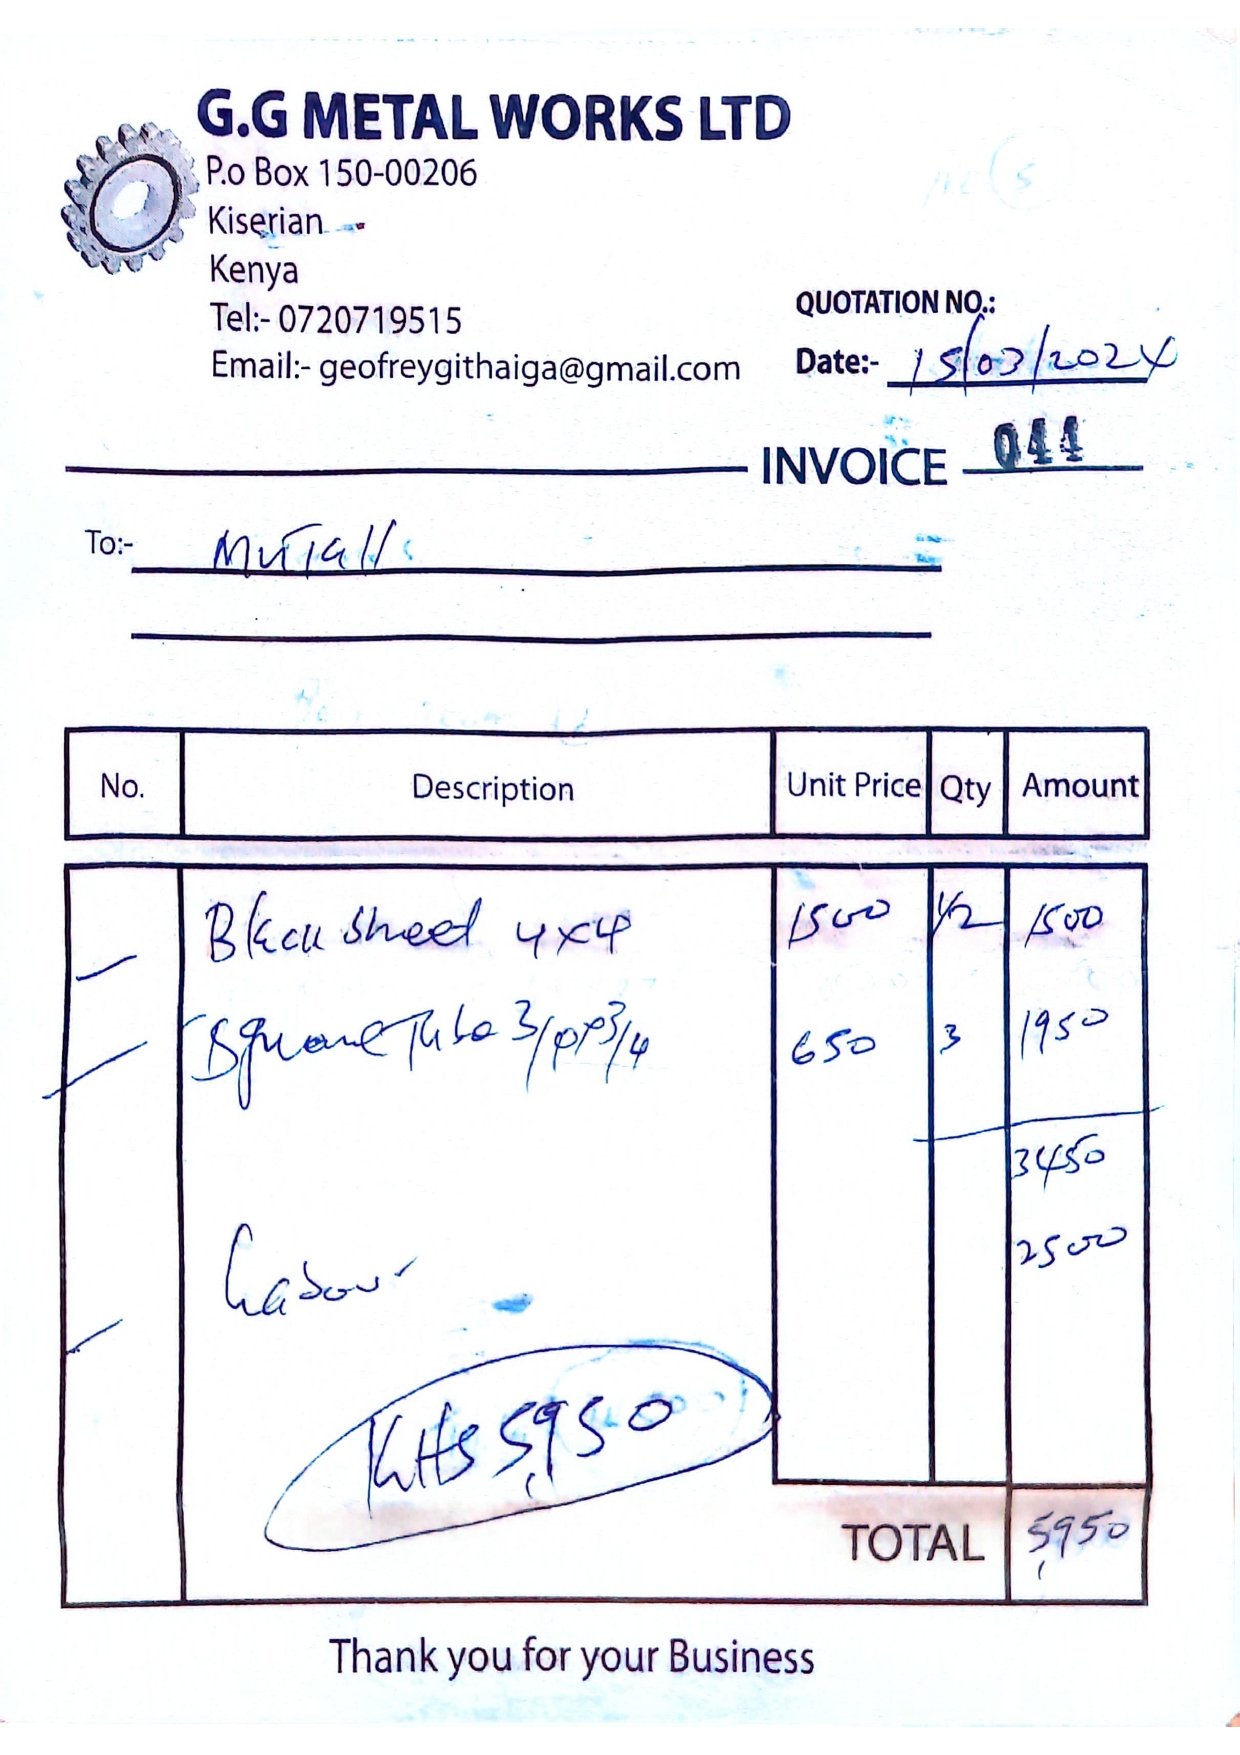 G.G METAL WORKS LTD
P.o Box 150-00206
Kiserian
Kenya
Tel:- 0720719515
Email:- geofreygithaiga@gmail.com
QUOTATION NO.:
Date:- 15/03/2024
INVOICE 044
To:- Mutall
No. Description Unit Price Qty Amount
Black sheed 4x4 1500 1/2 1500
Square Tube 3/4x3/4 650 3 1950
3450
Labour 2500
KHS 5,950
TOTAL 5,950
Thank you for your Business